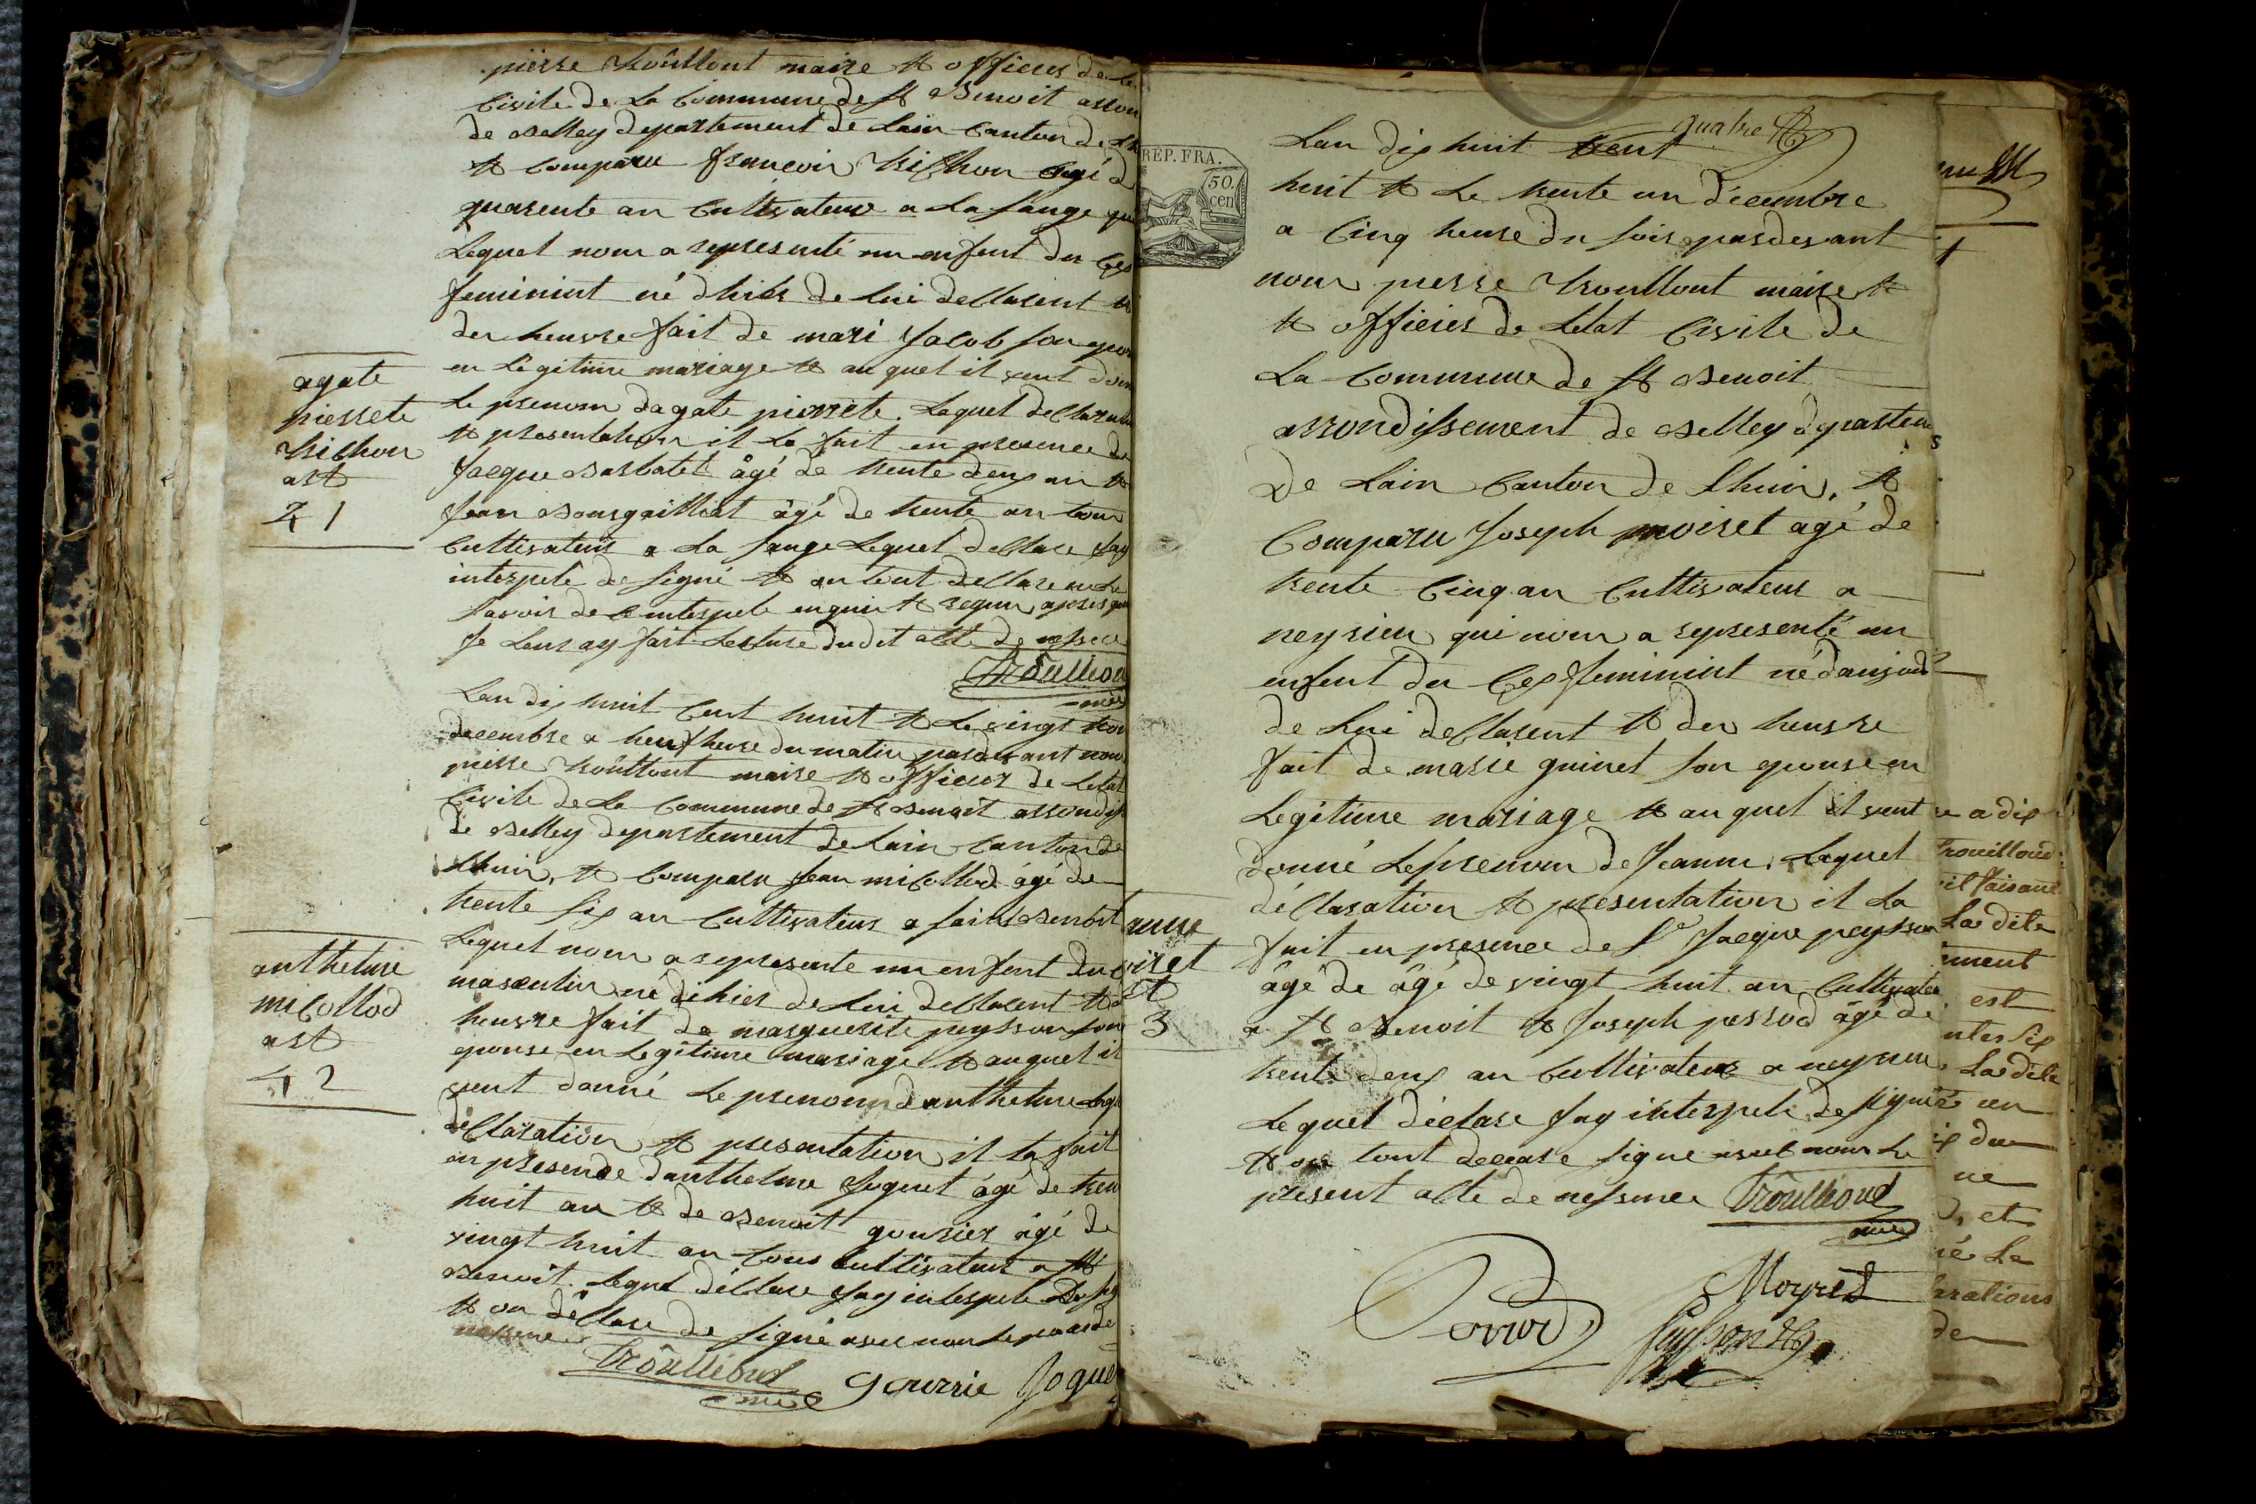 pierre trôuilloud maire et officier de le
Civile de La Commune de st Benoit arron
de Belley departement de Lain Canton de Lh
et Comparu francoir trichon agé d
quarente an Cultivateur a La sauge qu
Lequel nour a representé un enfant du Cex
feminint né dhier de Lui declarent et
der heuvre fait de mari Jacob son epou
en Legitime mariage et auquel il veut donn
Le prenom dagate pierrete. Lequel declaration
et presentation il La fait en presence de
Jacque Barbatet âgé de trente deux an et
Jean Bourgailliat âgé de trente an tour
Cultivateur a La sauge Lequel declare fay
interpelé de signé et on tout declare ne Le
savoir de enquir et requir apres que
Je Leur ay fait Lecture dudit acte de nessece
Trôuilloud
maire
Lan dix huit Cent huit et Le vingt
decembre a heuf heure du matin pardevant nour
pierre trôuilloud maire et officier de Letat
Civile de La Commune de st Benoit arrondis
de Belley departement de Lain Canton de
Lhuir, et Comparu Jean micollod âgé de
trente six an Cultivateur a saint Benoit
Lequel nour a represente un enfant du
masculin né dehier de Lui declarent et d
heuvre fait de marguerite peysson son
epouse en Legitime mariage et auquel il
veut donné Le prenom danthelme Lequ
déclaration et presentation il La fait
en presence danthelme Joguet âgé de tren
huit an et de Benoit gourier âgé de
vingt huit an tour Cultivateur a st
Benoit. Lequel déclare fay interpelé De sig
et on déclare de signé avec nour Le
nessence
Trôuilloud
maire gourrie Joguet
agate
pierrete
trichon
art
41
anthelme
micollod
art
42
REP. FRA.
50.
cen
quatre
Lan dix huit Cent
huit et Le trente un décembre
a Cinq heure du soir pardevant
nour pierre trouilloud maire et
et officier de Letat Civile de
La Commune de st Benoit
arrondissement de Belley départem
De Lain Canton de Lhuir. et
Comparu Joseph moiret agé de
trente Cinq an Cultivateur a
neyrieu qui nour a represente un
enfent du Cex feminint né daujourd
de Lui declarent et der heuvre
fait de marie guinet son epouse en
Legitime mariage et auquel il veut
donné Le prenom de Jeanne. Lequel
déclaration et presentation il La
fait en presence de Sr Jacque peysson
âgé de âgé de vingt huit an Cultivateu
a st Benoit et Joseph perrod âgé de
trente deux an Cultivateur a neyrieu
Lequel déclare fay interpelé de signé
et on tout declare signe avec nour Le
present acte de nessence Trôuilloud
maire
Perrod Moyret
peysson
anne
oiret
rt
3
e a dix
Trouilloud
il faisant
La dite
ment
est
ntes six
La dite
e un
x du
ne
D, et
né Le
arations
de